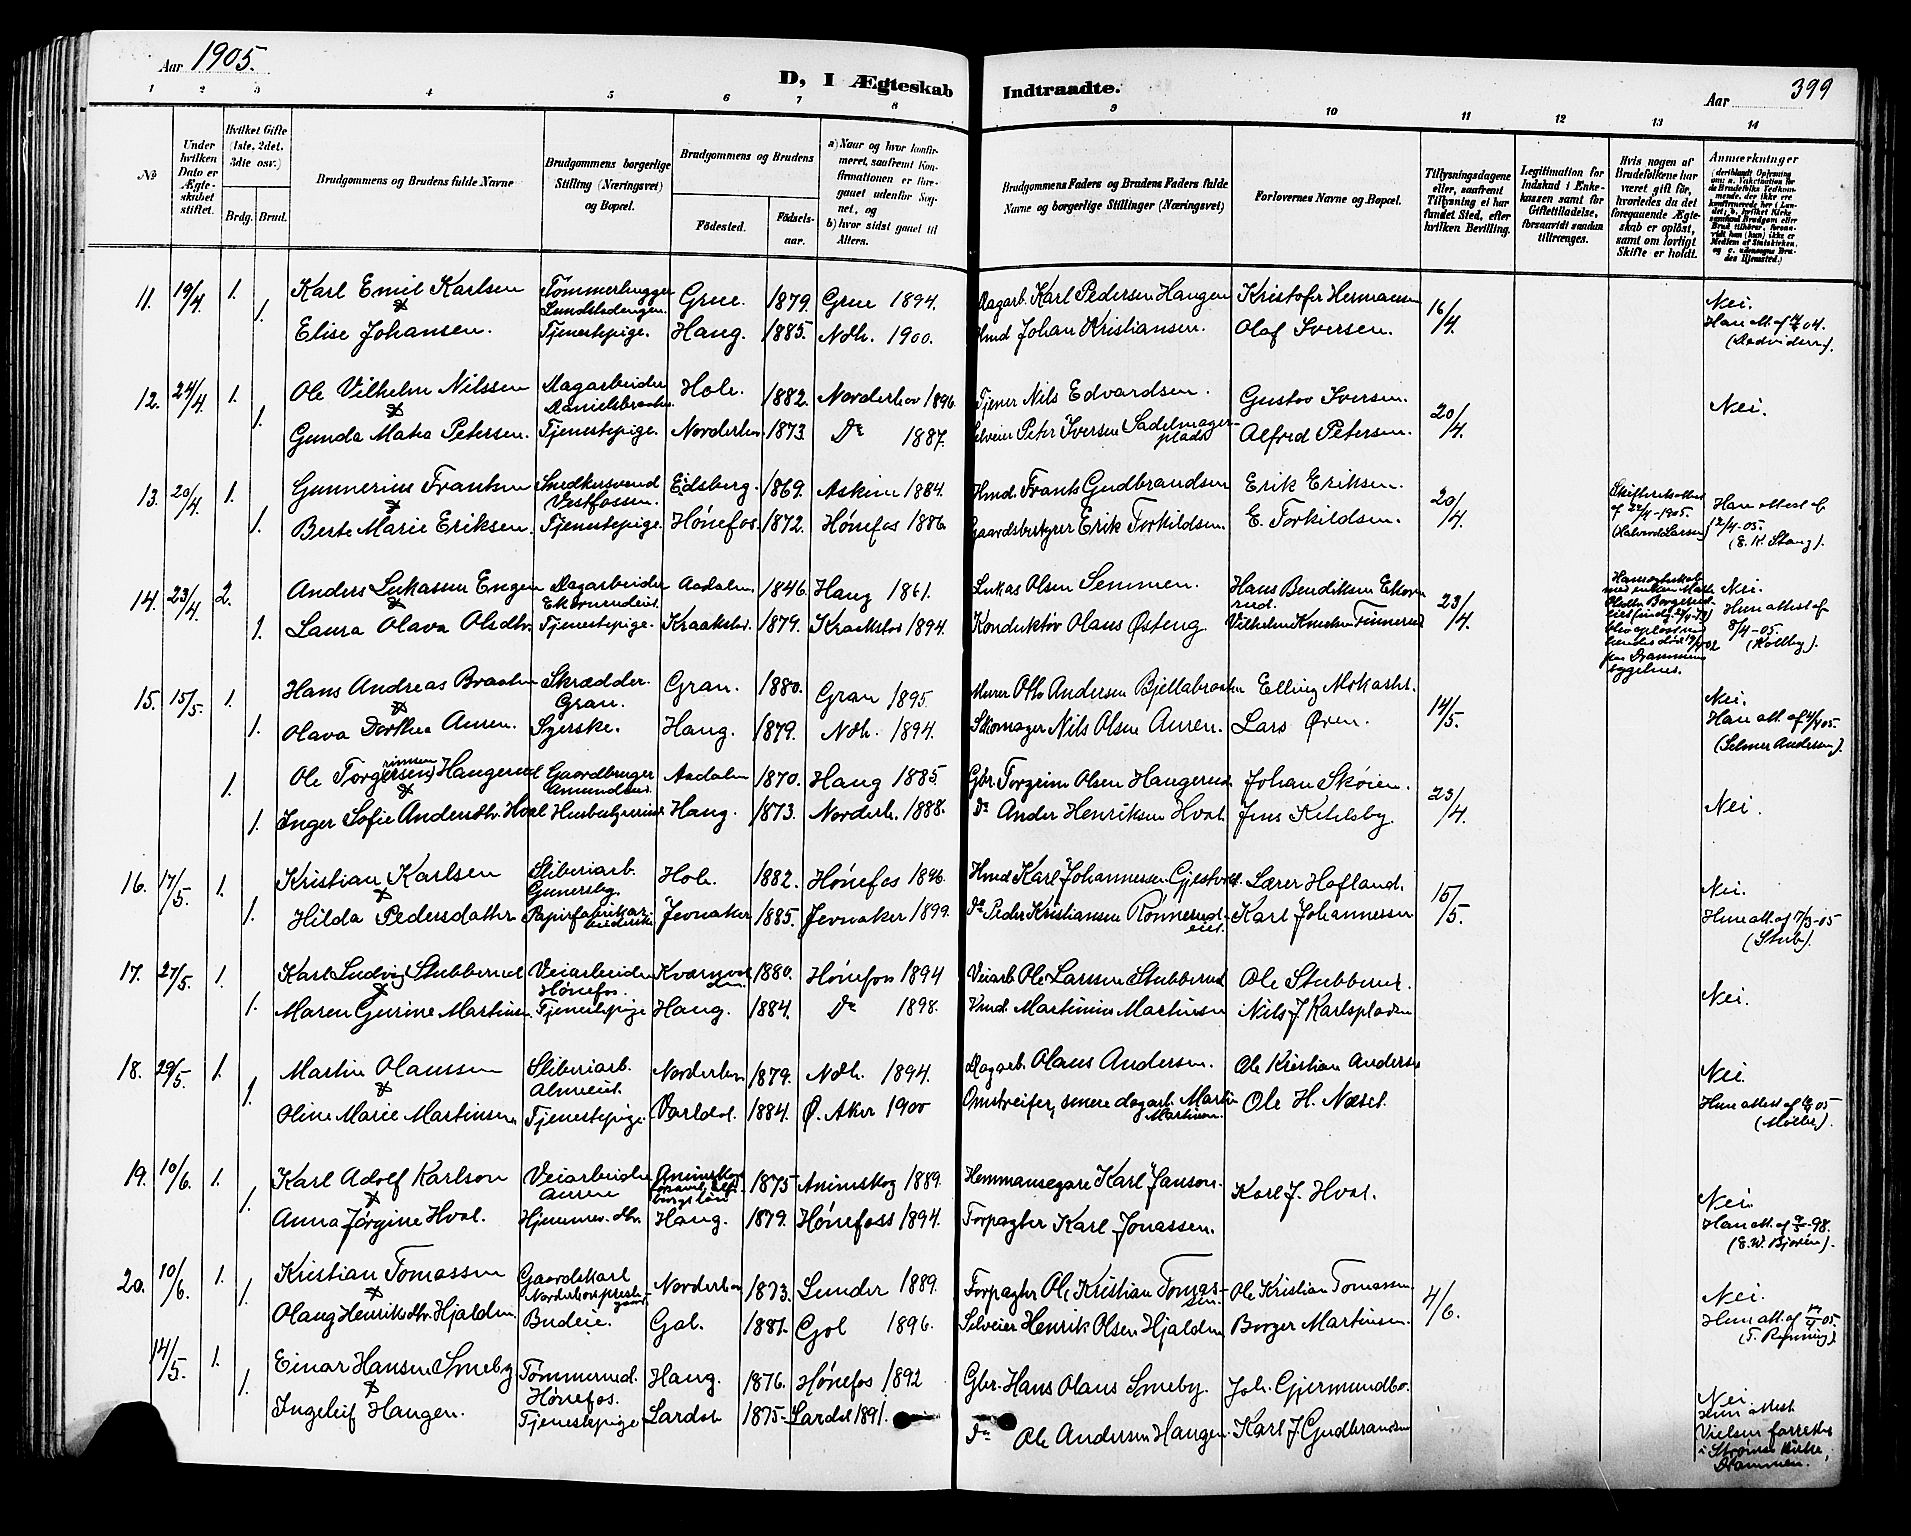 Aar 1905.
D, I Ægteskab Indtraadte.
Aar 399
1 2 3 4 5 6 7 8 9 10 11 12 13 14
No
Under hvilken Dato er Ægteskabet stiftet.
Hvilket Gifte (1ste, 2det, 3die osv.)
Brdg. Brud.
Brudgommens og Brudens fulde Navne
Brudgommens borgerlige Stilling (Næringsvei) og Bopæl.
Brudgommens og Brudens
Fødested. Fødselsaar.
a) Naar og hvor konfirmeret, saafremt Konfirmationen er foregaaet udenfor Sognet, og
b) hvor sidst gaaet til Alters.
Brudgommens Faders og Brudens Faders fulde Navne og borgerlige Stillinger (Næringsvei)
Forlovernes Navne og Bopæl.
Tillysningsdagene eller, saafremt Tillysning ei har fundet Sted, efter hvilken Bevilling.
Legitimation for Indskud i Enkekassen samt for Giftetilladelse, forsaavidt saadan tiltrænges.
Hvis nogen af Brudefolkene har været gift før, hvorledes da det foregaaende Ægteskab er opløst, samt om lovligt Skifte er holdt.
Anmærkninger
11. 19/4 1. Karl Emil Karlsen Tømmerhugger Grue. 1879. Grue 1894. Dagarb. Karl Pedersen Haugen Kristofer Hermansen 16/4 Nei.
1. Elise Johansen. Tjenestepige. Haug. 1885. Ndh. 1900. Hmd Johan Kristiansen. Olaf Iversen.
12. 24/4 1. Ole Vilhelm Nilssen Dagarbeider Hole. 1882. Norderhov 1896. Tjener Nils Edvardsen. Gustav Iversen. 20/4 Nei.
1. Gunda Matea Petersen. Tjenestepige. Norderhov 1873. Do 1887. Selveier Peter Iversen Sadelmagerplads Alfred Petersen.
13. 20/4 1. Gunnerius Frantsen Snedkersvend Vestfossen. Eidsberg. 1869. Askim 1884. Hmd. Frants Gudbrandsen Erik Eriksen. 20/4
1. Berte Marie Eriksen. Tjenestepige. Hønefos. 1872. Hønefos 1886. Gaardsbestyrer Erik Torkildsen. E. Torkildsen.
Skifteretsattest af 22/4-1905. Halvord Larsen
Han attest af 12/4-05. (E. K. Stang).
14. 23/4 2. Anders Lukassen Engen Dagarbeider Aadalen 1846. Haug 1861. Lukas Olsen Semmen. Hans Bendiksen Ekornrud. 23/4 Nei.
1. Laura Olava Olsdtr. Tjenestepige. Kraakstad. 1879. Kraakstad 1894. Konduktør Olaus Østeng. Vilhelm Knudsen
Hun attest af 8/4-05. (Kolby).
15. 15/5. 1. Hans Andreas Braaten Skrædder. Gran. Gran. 1880. Gran 1895. Murer Otto Andersen Bjellabraaten Elling Mokastet. 14/5 Nei.
1. Olava Dorthea Auren. Syerske. Haug. 1879. Ndh. 1894. Skomager Nils Olsen Auren. Lars Øren.
(Selmer Andersen).
1. Ole Torgersen (rimsen) Haugerud Gaardbruger Aadalen 1870. Haug 1885 Gbr. Torgrim Olsen Haugerud. Johan Skøien. 23/4 Nei.
1. Inger Sofie Andersdtr. Hval Husbestyrerinde Haug. 1873. Norderh. 1888. Do Ander Henriksen Hval. Jens Kihlsby.
16. 17/5. 1. Kristian Karlsen Sliberiarb. Hole. 1882. Hønefos 1896. Hmd Karl Johannessen Gjestvold. Lærer Hafland. 15/5. Nei.
1. Hilda Pedersdatter Papirfabrikarbeiderske Jevnaker 1885. Jevnaker 1899. Do Peder Kristiansen Rønnerudeiet. Karl Johannessen Hun att. af 7/3-05 (Stub).
17. 27/5. 1. Karl Ludvig Stubberud Veiarbeider Hønefos. 1880. Hønefos 1894 Veiarb. Ole Larsen Stubberud Ole Stubberud. Nei.
1. Maren Gurine Martinsen. Tjenestepige Haug. 1884. Do 1898. Hmd. Martinius Martinsen Nils J. Karlspladsen
18. 29/5. 1. Martin Olaussen Sliberiarb. Almeiet. Norderhov 1879. Ndh. 1894. Dagarb. Olaus Andersen. Ole Kristian Andersen Nei.
1. Oline Marie Martinsen Tjenestepige. Vardal. 1884. Ø. Aker 1900 Omstreifer, senere dagarb. Martin Martinsen. Ole H. Næset.
19. 10/6. 1. Karl Adolf Karlson Veiarbeider Auren Animskog 1875 Animskog 1889. Hemmansegare Karl Janson. Karl J. Hval. Nei.
1. Anna Jørgine Hval. Hjemmev. dtr. Haug. 1879. Hønefoss 1894. Forpagter Karl Jonassen. (E. W. Bjorén).
20. 10/6. 1. Kristian Tomassen Gaardskarl Norderhov prestegaard. Norderhov 1873. Lunder 1889. Forpagter Ole Kristian Tomassen. Ole Kristian Tomassen 4/6. Nei.
1. Olaug Henriksdtr. Hjalden. Budeie. Gol. 1881. Gol 1896. Selveier Henrik Olsen Hjalden Borger Martinsen.
14/5. 1. Einar Hansen Smeby Tømmermd. Hønefos. Haug. 1876. Hønefos 1892 Gbr. Hans Olaus Smeby. Joh. Gjermundbo. Nei
1. Ingeleif Haugen. Tjenestepige Lardal 1875 Lardal 1891. Do Ole Andersen Haugen. Karl J. Gudbrandsen
Hun attest Vielsen forrettet i Strømsø kirke, Drammen.